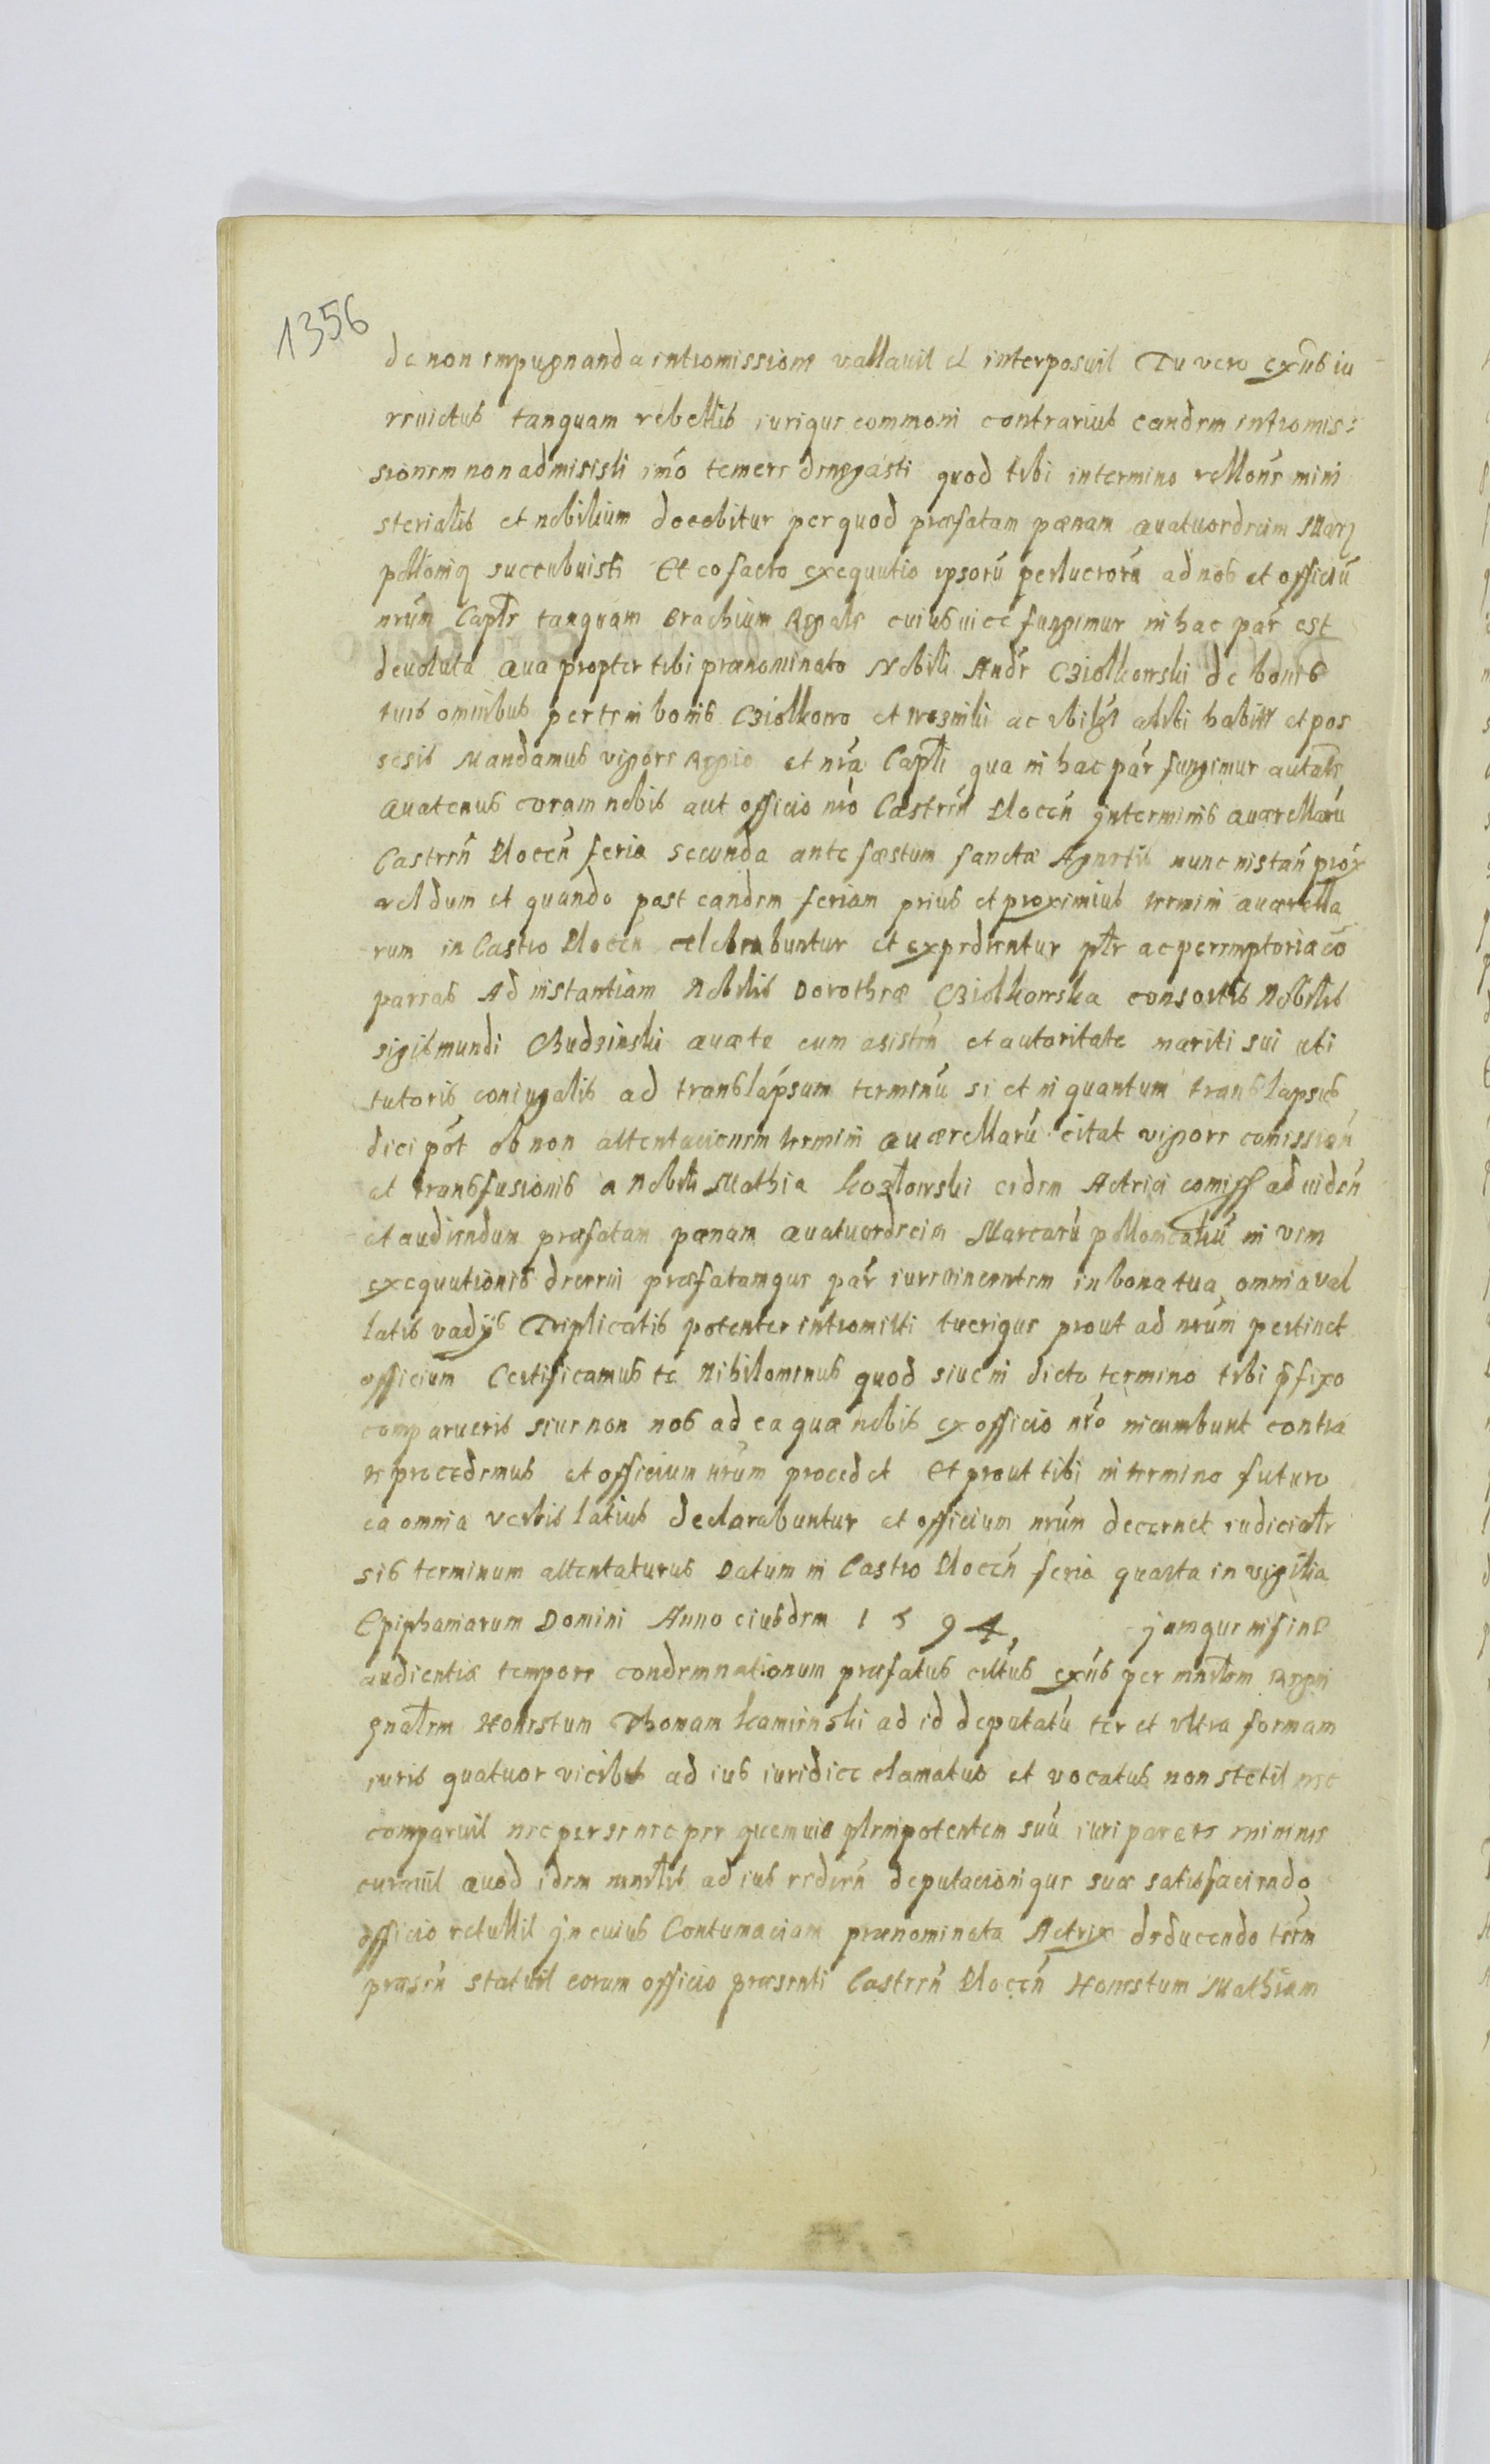 1356
de non impugnanda intromissione vallavit et interposuit Tu vero exñs iu
re victus tanquam rebellis iurique commoni contrarius eandem intromis:
sionem non admisisti imo temere denegasti quod tibi in termino rellone mini
sterialis et nobilium docebitur per quod præfatam pænam quatuordecim Marq
pollonicq succubuisti Et eo facto exequutio ipsorū perlucrorū ad nos et officiū
nrūm Captle tanquam Brachium Regale cuius vice fungimur in hac par est
devoluta Qua propter tibi prænominato Nobili Andr Cziolkowski de bonis
tuis omnibus pertem bonis Cziolkowo et Woznilii ac ubilzt alibi habitt et pos
sesis Mandamus vigore Regio et nra Captli qua in hac par fungimur autate
Quatenus coram nobis aut officio nro Castren Plocen in terminis Quærellarū
Castren Plocen feria secunda ante fæstum sanctæ Agnetis nunc instan prox
vel dum et quando post eandem feriam prius et proximius termini quærella
rum in Castro Plocen celebrabuntur et expedientur ptr ac peremptoria cō
pareas Ad instantiam Nobilis Dorotheæ Cziolkowska consortis Nobilis
Sigismundi Chudzinski quæte cum asisten et autoritate mariti sui uti
tutoris coniugalis ad translapsum terminū si et in quantum translapsus
dici pot ob non attentacionem termini quærellarū citat vigore comission
et transfusionis a Nobili Mathia Kozłowski eidem Actrici comiss ad viden
et audiendum præfatam pænam quatuordecim Marcarū pollonicaliū in vim
exequutionis decerni præfatamque par iurevincentem in bona tua omnia val
latis vadys Triplicatis potenter intromitti tuerique prout ad nrūm pertinet
officium Certificamus te nihilominus quod sive in dicto termino tibi pfixo
comparueris sive non nos ad ea quæ nobis ex officio nro incumbunt contra
te procedemus et officium nrūm procedet Et prout tibi in termino futuro
ea omnia verbis latius declarabuntur et officium nrūm decernet iudicialr
sis terminum attentaturus Datum in Castro Plocen feria quarta in vigilia
Epiphaniarum Domini Anno eiusdem 1594, jamque in fine
audientiæ tempore condemnationum præfatus cittus exñs per mnrlem Regni
gnalem Honestum Thomam Kamienski ad id deputatū ter et ultra formam
iuris quatuor vicibus ad ius iuridice clamatus et vocatus non stetit nec
comparuit nec per se nec per quemvis plenipotentem suū iuri parere minime
curavit Quod idem mnrlis ad ius redien deputacionique suæ satisfaciendo
officio retullit jn cuius Contumaciam prænominata Actrix deducendo term
præsen statuit coram officio præsenti Castren Plocen Honestum Mathiam